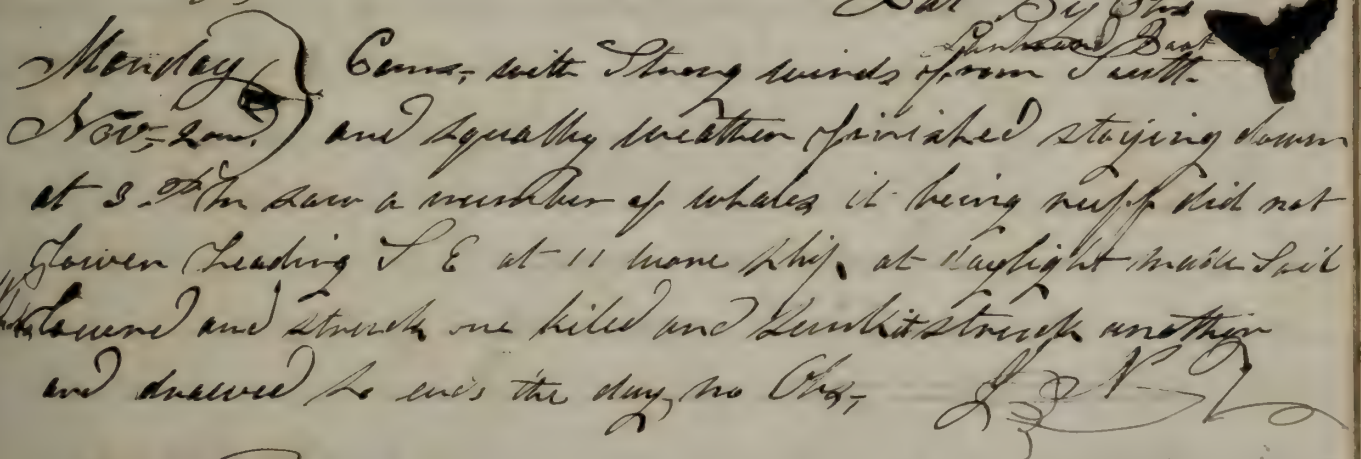 Lat By Obs
Larboard Boat
Monday Coms, with Strong winds from South
Nov, 2nd. and squally weather finished stowing down
at 3 Pm saw a number of whales it being ruff did not
Lower Heading S E at 11 wore ship, at daylight made Sail
Lowered and struck one kiled and sunk it struck another
and drawed So ends the day, no Obs,